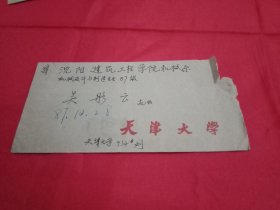 沈阳建筑工程学院机械系
机械设计与制造专业87级
吴彤云
87.12.25
天津大学
天津大学 734# 刘